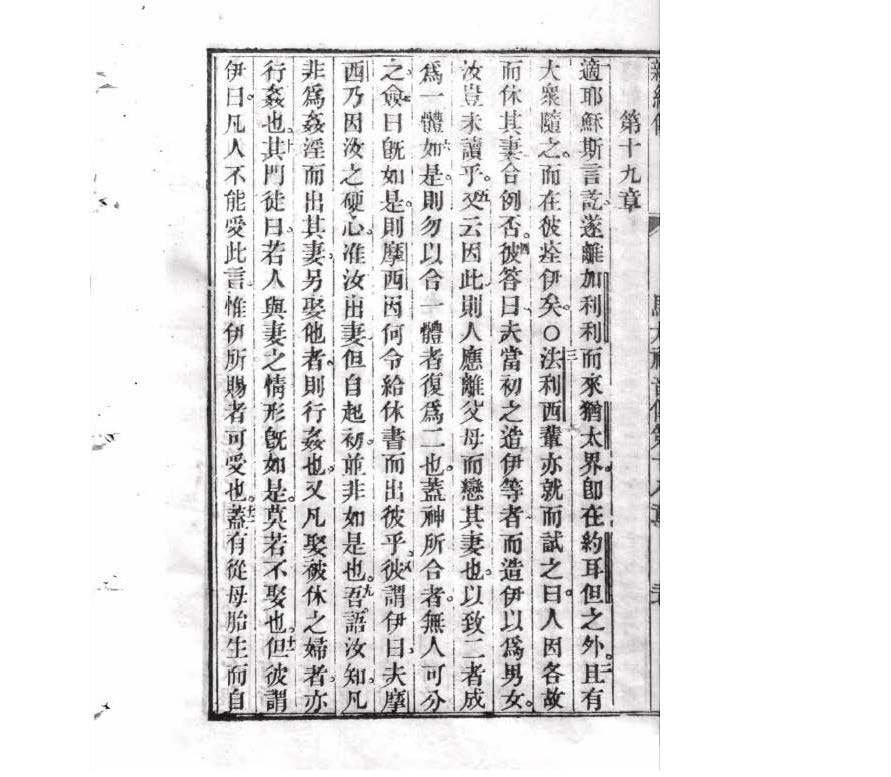 馬太福音傳第十八章
第十九章
一適耶穌斯言訖遂離加利利而來猶太界卽在約耳但之外。二且有
大衆隨之。而在彼痊伊矣。〇三法利西輩亦就而試之曰。人因各故
而休其妻合例否。四彼答曰、夫當初之造伊等者而造伊以爲男女。
汝豈未讀乎。五又云因此則人應離父母而戀其妻也。以致二者成
爲一體、六如是則勿以合一體者復爲二也。蓋神所合者。無人可分
之。七僉曰旣如是。則摩西因何令給休書而出彼乎、八彼謂伊曰、夫摩
西乃因汝之硬心。准汝出妻、但自起初。並非如是也。九吾語汝知。凡
非爲姦淫而出其妻、另娶他者。則行姦也。又凡娶被休之婦者、亦
行姦也。十其門徒曰。若人與妻之情形旣如是。莫若不娶也。十一但彼謂
伊曰。凡人不能受此言、惟伊所賜者可受也。十二蓋有從母胎生而自